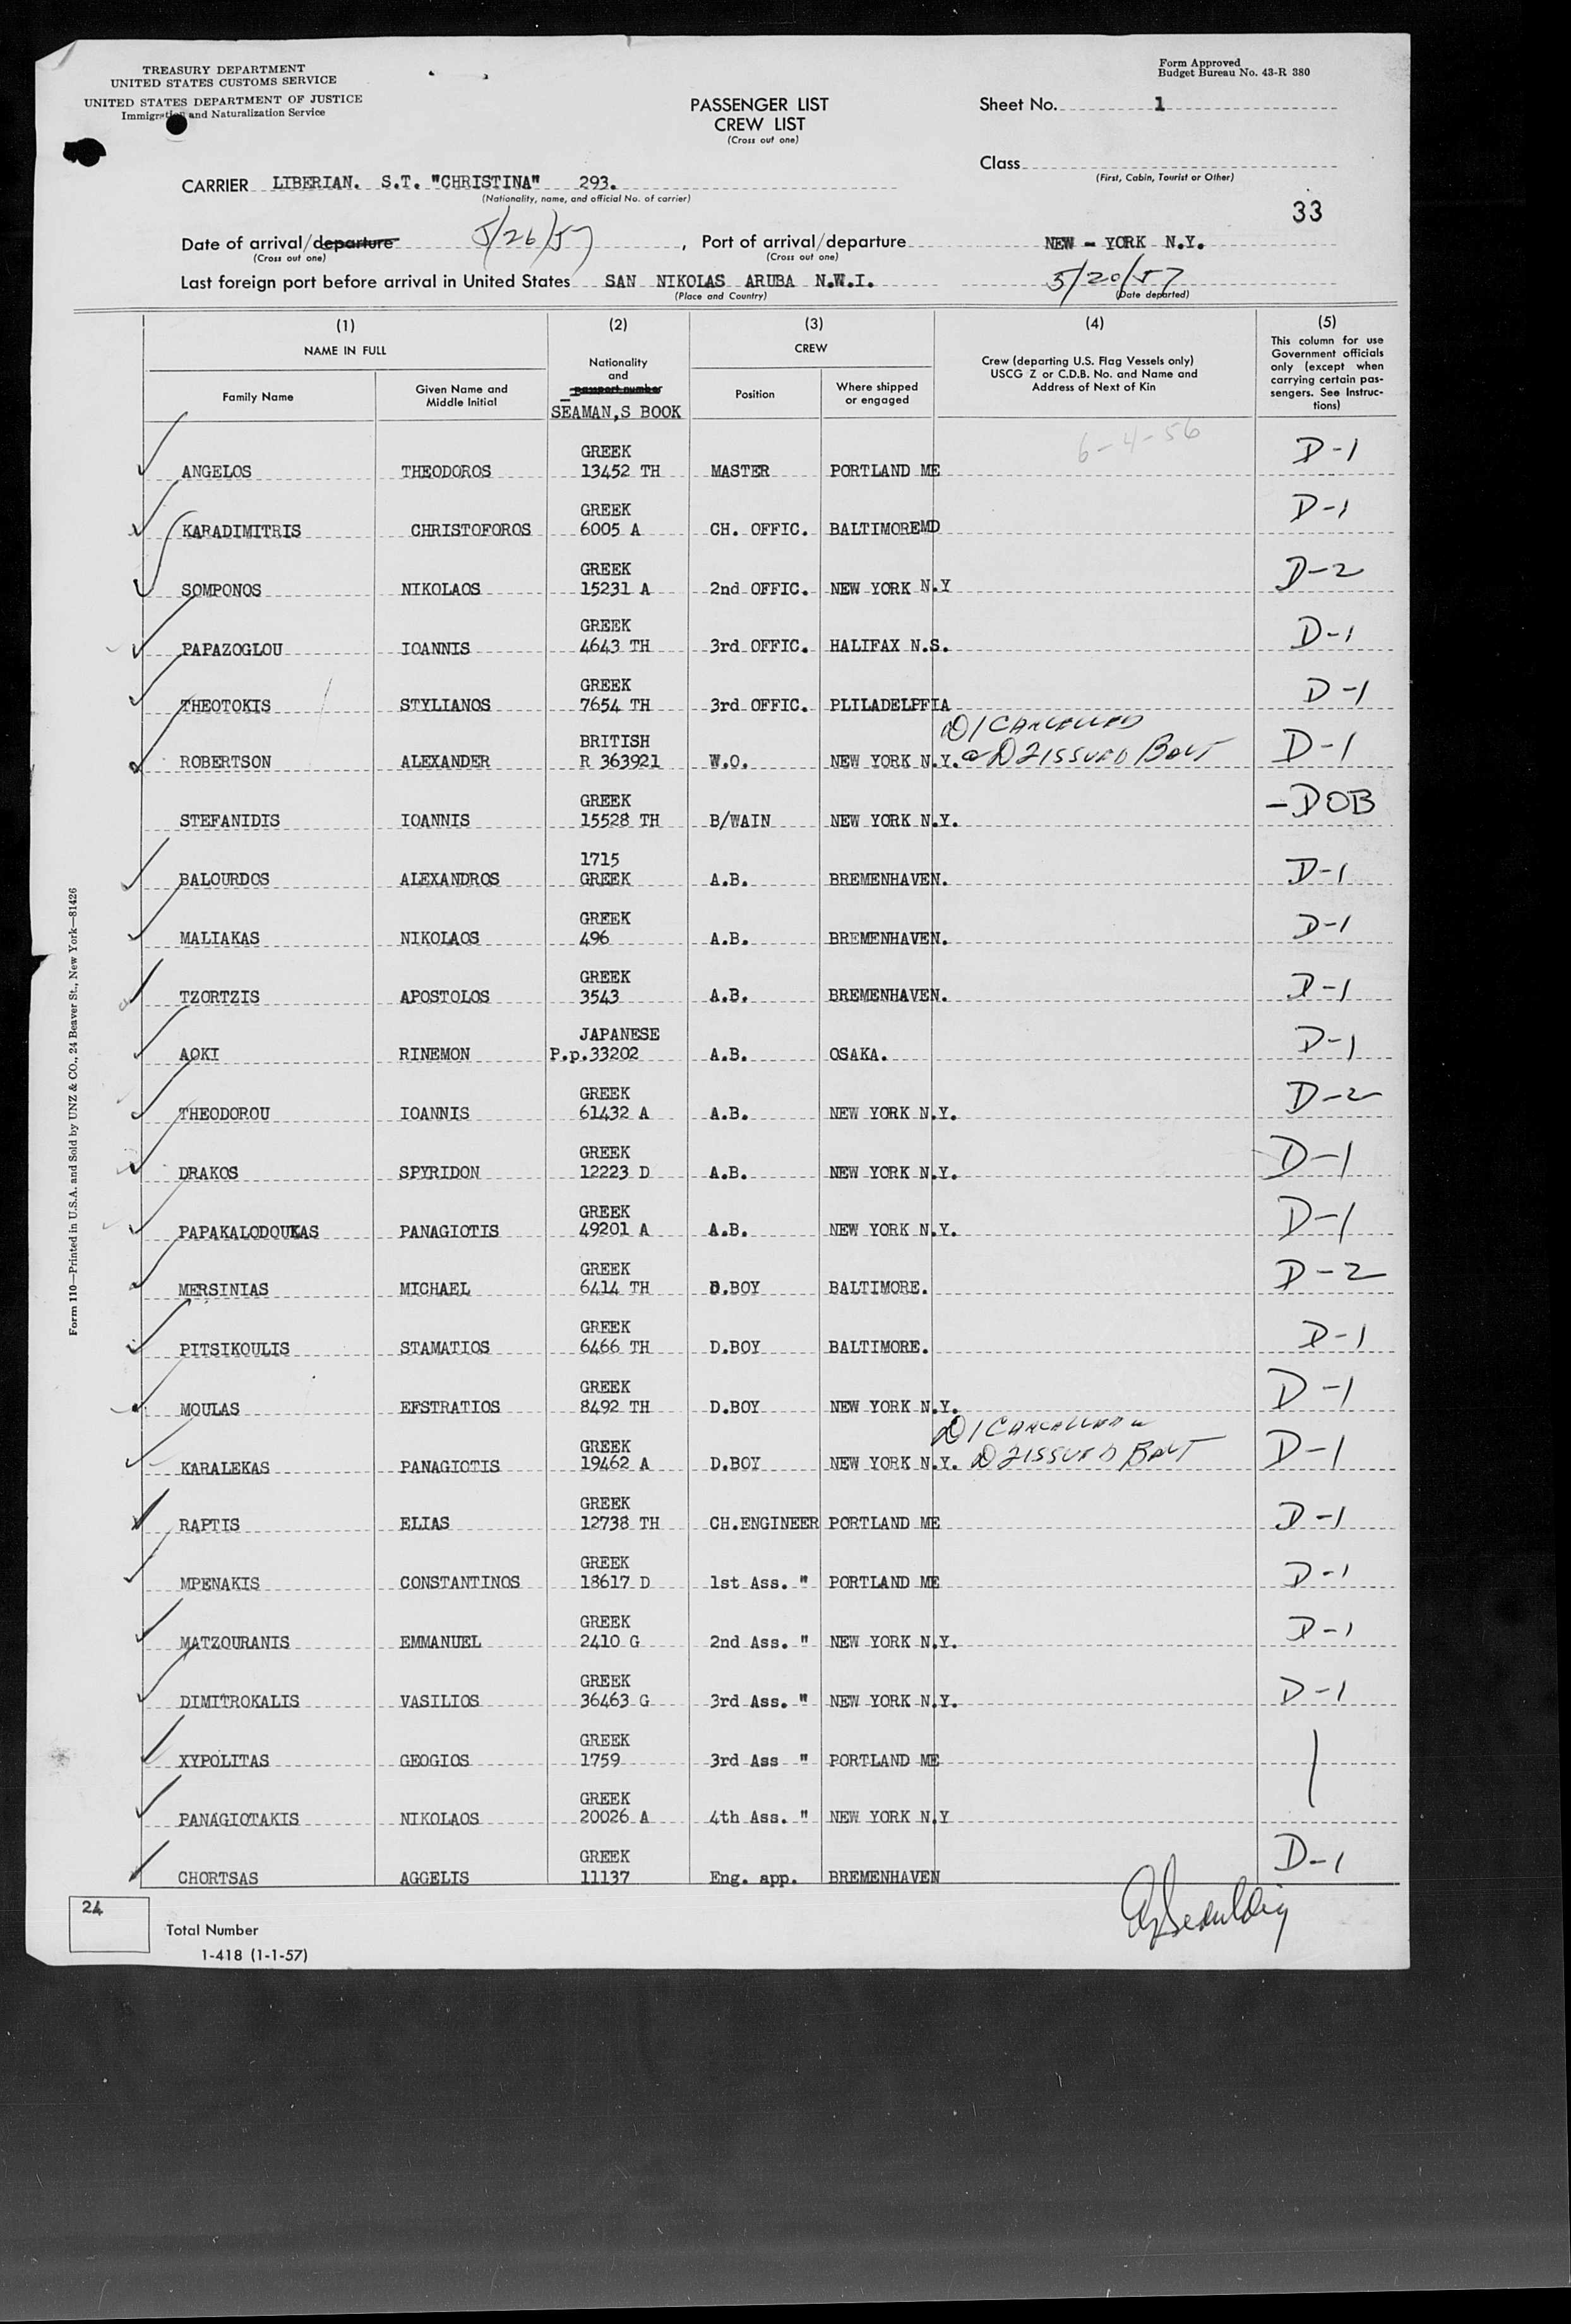 TREASURY DEPARTMENT
UNITED STATES CUSTOMS SERVICE
UNITED STATES DEPARTMENT OF JUSTICE
Immigration and Naturalization Service
Form Approved
Budget Bureau No. 43-R 380
PASSENGER LIST
CREW LIST
(Cross out one)
Sheet No. 1
Class
(First, Cabin, Tourist or Other)
CARRIER LIBERIAN. S.T. "CHRISTINA" 293.
(Nationality, name, and official No. of carrier)
33
Date of arrival/departure 5/26/57, Port of arrival/departure NEW - YORK N.Y.
(Cross out one) (Cross out one)
Last foreign port before arrival in United States SAN NIKOLAS ARUBA N.W.I. 5/20/57
(Place and Country) (Date departed)
(1) (2) (3) (4) (5)
NAME IN FULL
Family Name
Given Name and Middle Initial
Nationality and passport number
SEAMAN,S BOOK
CREW
Position
Where shipped or engaged
Crew (departing U.S. Flag Vessels only)
USCG Z or C.D.B. No. and Name and
Address of Next of Kin
This column for use
Government officials
only (except when
carrying certain pas-
sengers. See Instruc-
tions)
GREEK 6-4-56
ANGELOS THEODOROS 13452 TH MASTER PORTLAND ME D-1
GREEK
KARADIMITRIS CHRISTOFOROS 6005 A CH. OFFIC. BALTIMOREMD D-1
GREEK
SOMPONOS NIKOLAOS 15231 A 2nd OFFIC. NEW YORK N.Y D-2
GREEK
PAPAZOGLOU IOANNIS 4643 TH 3rd OFFIC. HALIFAX N.S. D-1
GREEK
THEOTOKIS STYLIANOS 7654 TH 3rd OFFIC. PLILADELPFIA D-1
BRITISH D1 CANCELLED
ROBERTSON ALEXANDER R 363921 W.O. NEW YORK N.Y. D2 ISSUED BALT D-1
GREEK
STEFANIDIS IOANNIS 15528 TH B/WAIN NEW YORK N.Y. -DOB
1715
BALOURDOS ALEXANDROS GREEK A.B. BREMENHAVEN. D-1
GREEK
MALIAKAS NIKOLAOS 496 A.B. BREMENHAVEN. D-1
GREEK
TZORTZIS APOSTOLOS 3543 A.B. BREMENHAVEN. D-1
JAPANESE
AOKI RINEMON P.p.33202 A.B. OSAKA. D-1
GREEK
THEODOROU IOANNIS 61432 A A.B. NEW YORK N.Y. D-2
GREEK
DRAKOS SPYRIDON 12223 D A.B. NEW YORK N.Y. D-1
GREEK
PAPAKALODOUKAS PANAGIOTIS 49201 A A.B. NEW YORK N.Y. D-1
GREEK
MERSINIAS MICHAEL 6414 TH D.BOY BALTIMORE. D-2
GREEK
PITSIKOULIS STAMATIOS 6466 TH D.BOY BALTIMORE. D-1
GREEK
MOULAS EFSTRATIOS 8492 TH D.BOY NEW YORK N.Y. D-1
GREEK D1 CANCELLED
KARALEKAS PANAGIOTIS 19462 A D.BOY NEW YORK N.Y. D2 ISSUED BALT D-1
GREEK
RAPTIS ELIAS 12738 TH CH.ENGINEER PORTLAND ME D-1
GREEK
MPENAKIS CONSTANTINOS 18617 D 1st Ass. " PORTLAND ME D-1
GREEK
MATZOURANIS EMMANUEL 2410 G 2nd Ass. " NEW YORK N.Y. D-1
GREEK
DIMITROKALIS VASILIOS 36463 G 3rd Ass. " NEW YORK N.Y. D-1
GREEK
XYPOLITAS GEOGIOS 1759 3rd Ass " PORTLAND ME
GREEK
PANAGIOTAKIS NIKOLAOS 20026 A 4th Ass. " NEW YORK N.Y
GREEK
CHORTSAS AGGELIS 11137 Eng. app. BREMENHAVEN D-1
24
Total Number
1-418 (1-1-57)
Form 110—Printed in U.S.A. and Sold by UNZ & CO., 24 Beaver St., New York—81426